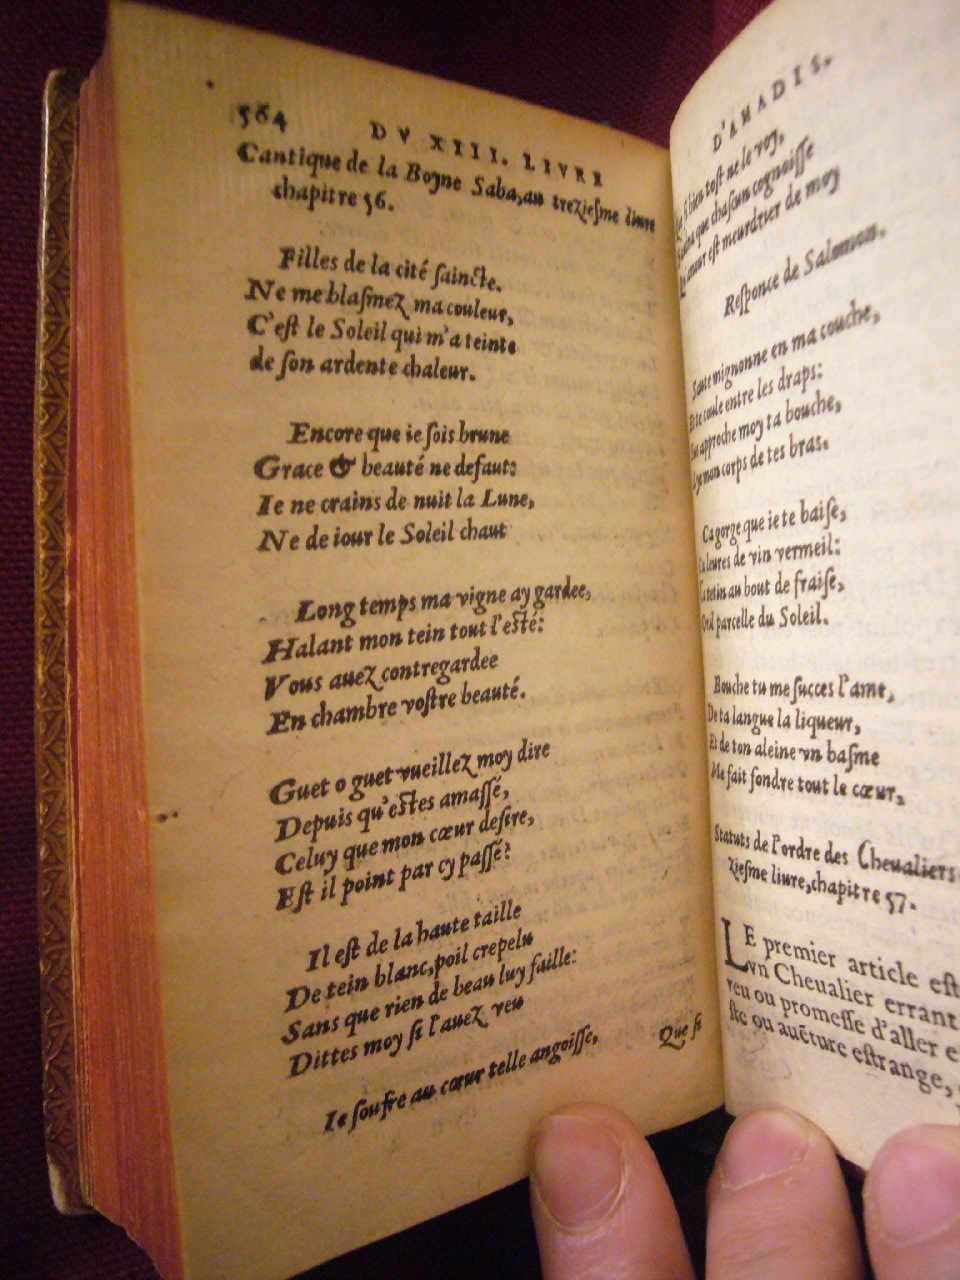 564
DV XIII. LIVRE
Cantique de la Royne Saba, au treziesme liure
chapitre 56.
Filles de la cité saincte.
Ne me blasmez ma couleur,
C'est le Soleil qui m'a teinte
de son ardente chaleur.
Encore que ie sois brune
Grace & beauté ne defaut:
Ie ne crains de nuit la Lune,
Ne de iour le Soleil chaut
Long temps ma vigne ay gardee,
Halant mon tein tout l'esté:
Vous auez contregardee
En chambre vostre beauté.
Guet o guet vueillez moy dire
Depuis qu'estes amassé,
Celuy que mon cœur desire,
Est il point par cy passé?
Il est de la haute taille
De tein blanc, poil crepelu
Sans que rien de beau luy faille:
Dittes moy si l'auez veu
Ie soufre au cœur telle angoisse,
Que si
D'AMADIS.
bien tost ne le voy,
que chascun cognoisse
est meurdrier de moy
Responce de Salomon.
mignonne en ma couche,
coule entre les draps:
approche moy ta bouche,
mon corps de tes bras.
Ca gorge que ie te baise,
leures de vin vermeil:
tetin au bout de fraise,
parcelle du Soleil.
Bouche tu me succes l'ame,
De ta langue la liqueur,
Et de ton aleine vn basme
Me fait fondre tout le cœur,
Statuts de l'ordre des Cheualiers
ziesme liure, chapitre 57.
LE premier article est
vn Cheualier errant
veu ou promesse d'aller
ste ou auēture estrange,